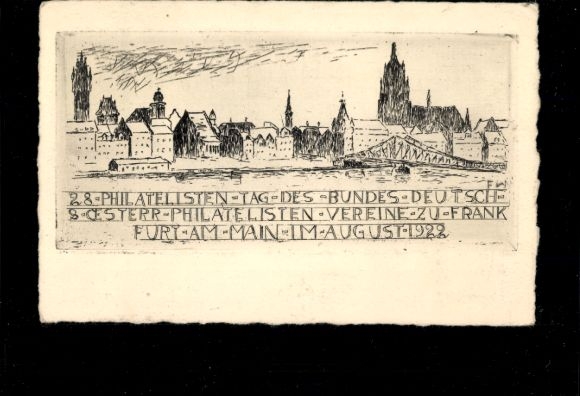 F W
28·PHILATELISTEN·TAG·DES·BUNDES·DEUTSCH·
&·ŒSTERR·PHILATELISTEN·VEREINE·ZU·FRANK
FURT·AM·MAIN·IM·AUGUST·1922